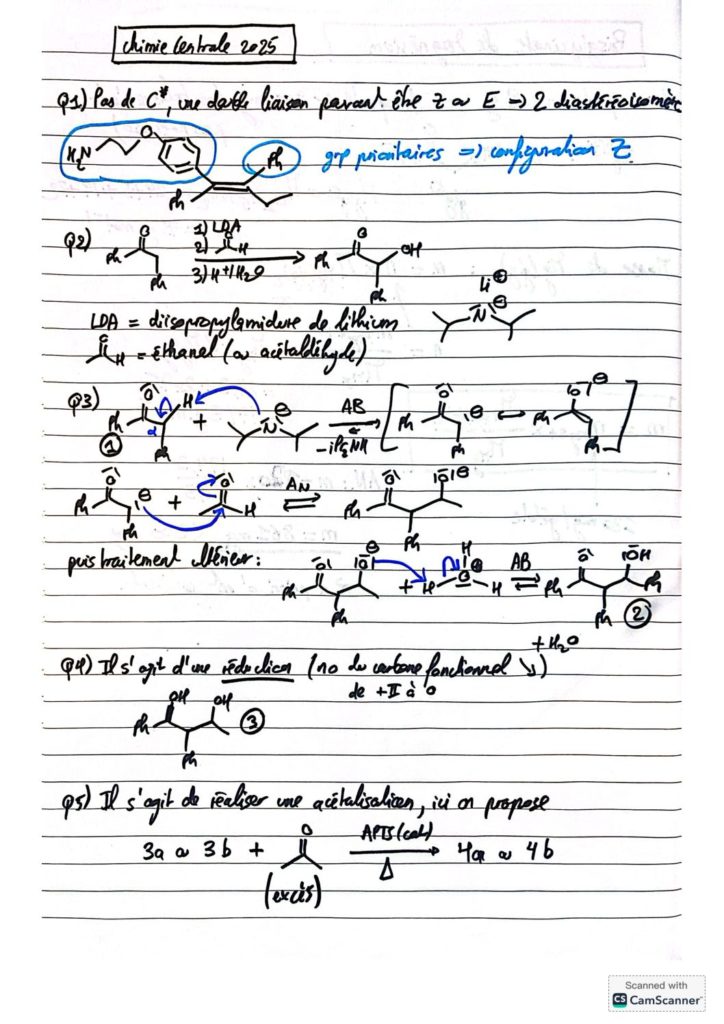 Chimie Centrale 2025
Q1) Pas de C*, une double liaison pouvant être Z ou E => 2 diastéréoisomère
H2N O Ph
grp prioritaires => configuration Z
Ph
Q2) Ph O Ph 1) LDA 2) O H 3) H+/H2O Ph O OH Ph
LDA = diisopropylamidure de lithium Li⊕ N⊖
O H = éthanal (ou acétaldéhyde)
Q3) Ph O H α Ph ① + N⊖ AB -iPr2NH [ Ph O ⊖ Ph ↔ Ph O⊖ Ph ]
Ph O ⊖ Ph + O H AN ⇌ Ph O O⊖ Ph
puis traitement ultérieur : Ph O O⊖ Ph + H O⊕ H H AB ⇌ Ph O OH Ph Ph ②
+ H2O
Q4) Il s'agit d'une réduction (no du carbone fonctionnel ↘)
de +II à 0
Ph OH OH Ph ③
Q5) Il s'agit de réaliser une acétalisation, ici on propose
3a ou 3b + O APTS (cat) Δ → 4a ou 4b
(excès)
Scanned with
CS CamScanner